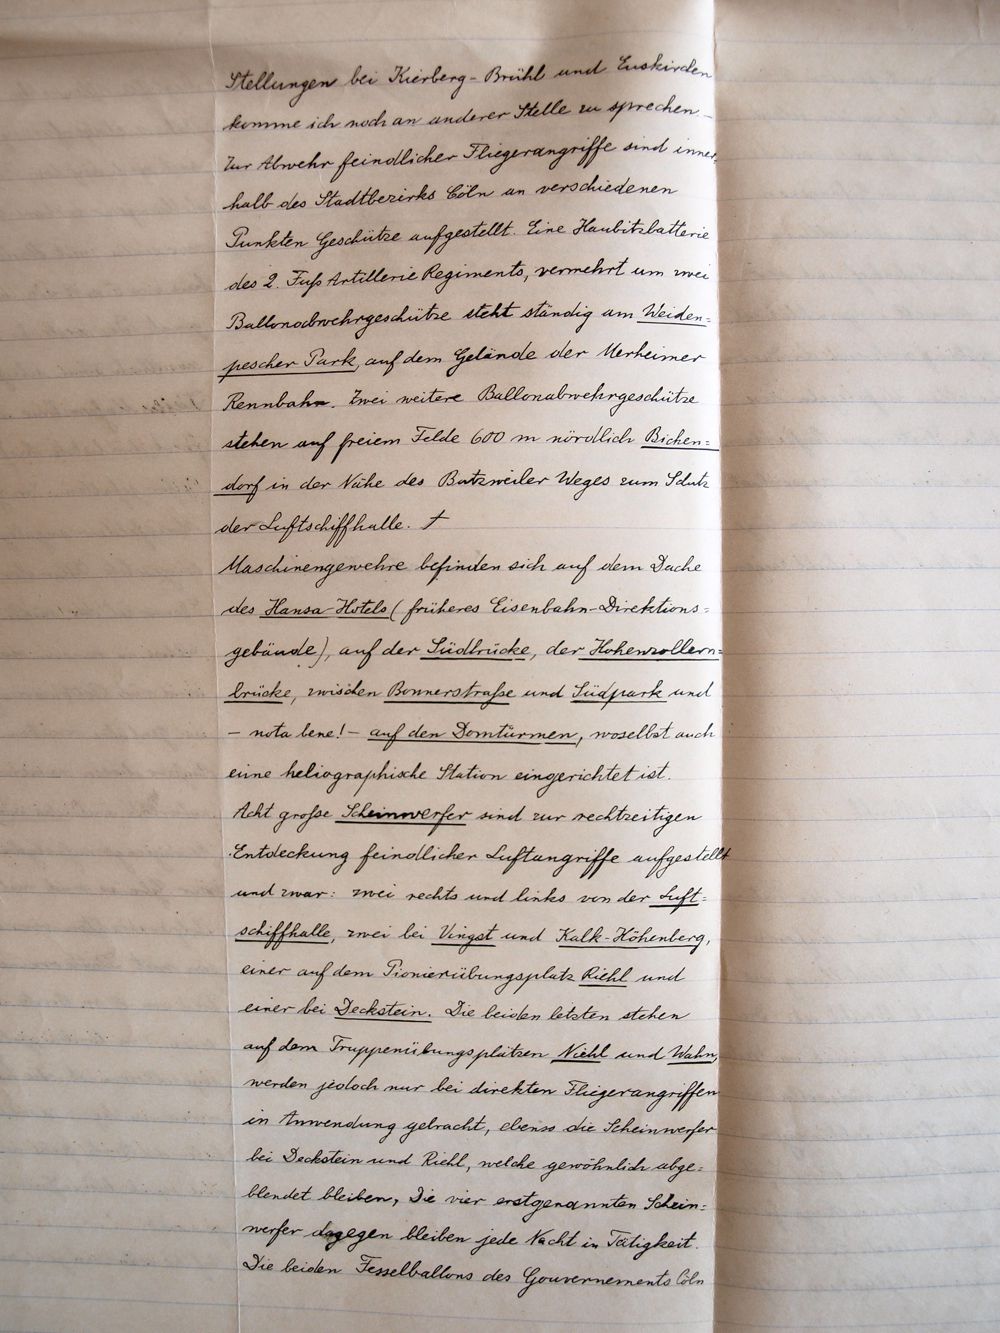 Stellungen bei Kierberg-Brühl und Euskirchen
komme ich noch an anderer Stelle zu sprechen. –
Zur Abwehr feindlicher Fliegerangriffe sind inner-
halb des Stadtbezirks Cöln an verschiedenen
Punkten Geschütze aufgestellt. Eine Haubitzbatterie
des 2. Fuß Artillerie Regiments, vermehrt um zwei
Ballonabwehrgeschütze steht ständig am Weiden=
pescher Park, auf dem Gelände der Merheimer
Rennbahn. Zwei weitere Ballonabwehrgeschütze
stehen auf freiem Felde 600 m nördlich Bichen=
dorf in der Nähe des Butzweiler Weges zum Schutz
der Luftschiffhalle. †
Maschinengewehre befinden sich auf dem Dache
des Hansa-Hotels (früheres Eisenbahn-Direktions=
gebäude), auf der Südbrücke, der Hohenzollern=
brücke, zwischen Bonnerstraße und Südpark und
– nota bene! – auf den Domtürmen, woselbst auch
eine heliographische Station eingerichtet ist.
Acht große Scheinwerfer sind zur rechtzeitigen
Entdeckung feindlicher Luftangriffe aufgestellt
und zwar: zwei rechts und links von der Luft=
schiffhalle, zwei bei Vingst und Kalk-Höhenberg,
einer auf dem Pionierübungsplatz Riehl und
einer bei Deckstein. Die beiden letzten stehen
auf dem Truppenübungsplätzen Niehl und Wahn,
werden jedoch nur bei direkten Fliegerangriffen
in Anwendung gebracht, ebenso die Scheinwerfer
bei Deckstein und Riehl, welche gewöhnlich abge=
blendet bleiben, Die vier erstgenannten Schein=
werfer dagegen bleiben jede Nacht in Tätigkeit.
Die beiden Fesselballons des Gouvernements Cöln